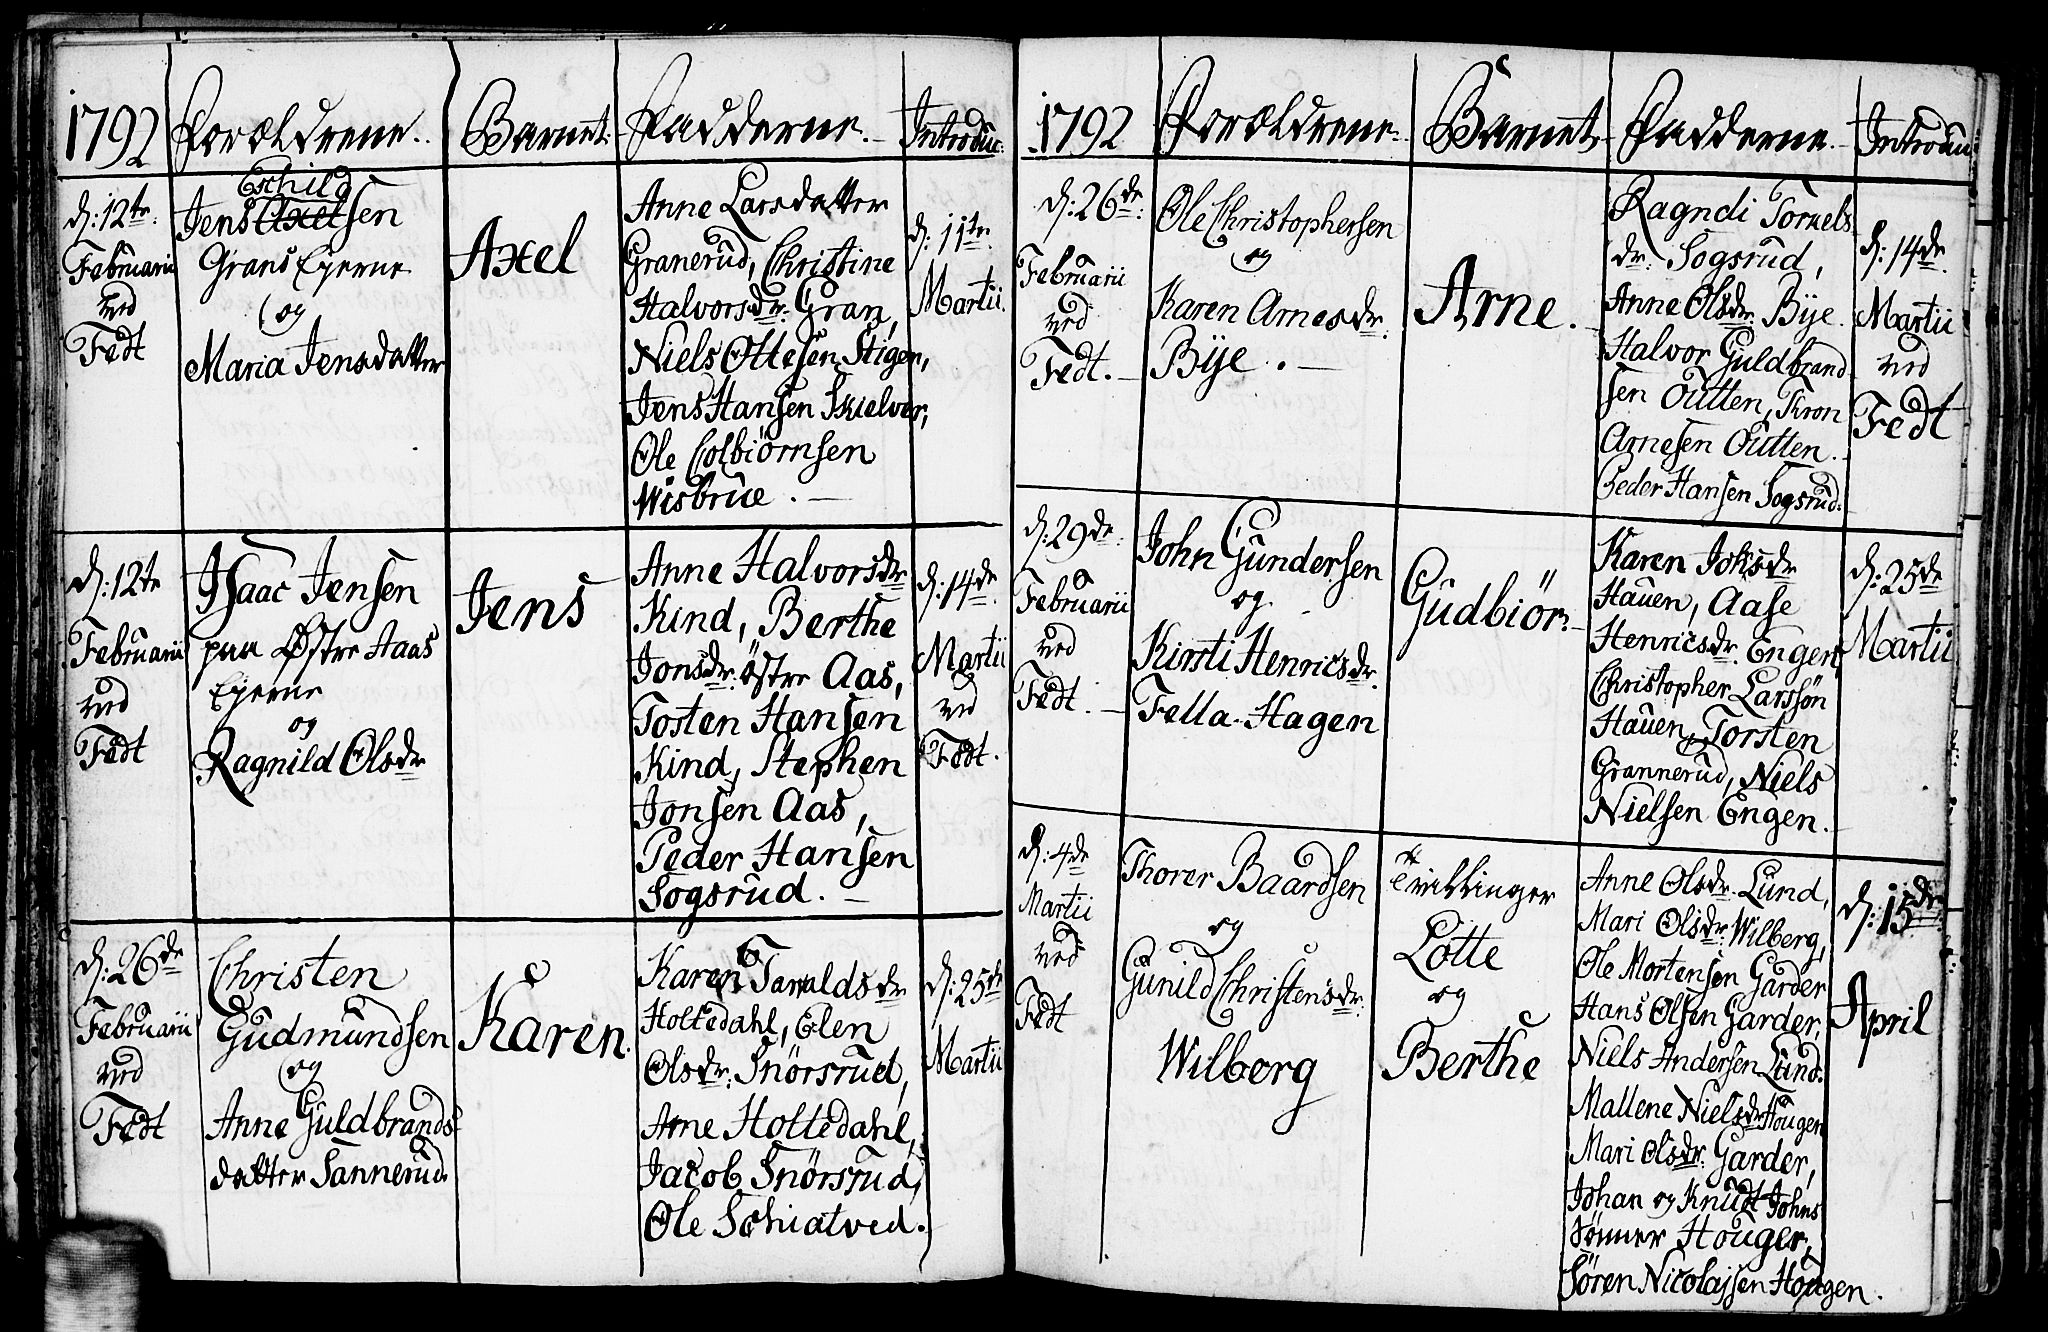 1792
Forældrene.
Barnet.
Fadderne.
Introduc:
d: 12te
Februarii
ved
Fedt
Eschild
Jens Axelsen
Grans Eyerne
og
Maria Jensdatter
Axel
Anne Larsdatter
Granerud, Christine
Halvorsdr. Gran,
Niels Ottesen Stigen,
Jens Hansen Skielver,
Ole Colbiörnsen
Wisbrue.
d. 11te
Martii.
d: 12te
Februarii
ved
Fedt
Isaac Jensen
paa Østre Aas
Eyerne
og
Ragnild Olsdr
Jens
Anne Halvorsdr
Kind, Berthe
Jonsdr. östre Aas,
Tosten Hansen
Kind, Stephen
Jonsen Aas,
Peder Hansen
Sogsrud.
d: 14de
Martii
ved
Fedt.
d: 26de
Februarii
ved
Fedt
Christen
Gudmundsen
og
Anne Guldbrands
datter Sannerud.
Karen.
Karen Tavaldsdr
Holtedahl, Elen
Olsdr: Snörsrud,
Arne Holtedahl,
Jacob Snörsrud,
Ole Schiatved.
d: 25de
Martii
1792
Forældrene.
Barnet.
Fadderne.
Introdu
d: 26de:
Februarii
ved
Fedt.
Ole Christophersen
og
Karen Arnesdr:
Bye.
Arne.
Ragndi Torkels
dr: Sogsrud,
Anne Olsdr: Bye.
Halvor Guldbrand
sen Outten, Tron
Arnesen Outten.
Peder Hansen Sogsrud.
d: 14de
Martii
ved
Fedt
d: 29de:
Februarii
ved
Fedt.
John Gundersen
og
Kirsti Henricsdr.
Fella-Hagen
Gudbiör.
Karen Joksdr
Hauen, Aase
Henricsdr. Engen,
Christopher Larssön
Hauen, Torsten
Grannerud, Niels
Nielsen Engen.
d: 25de
Martii
d: 4de
Martii
ved
Fedt
Thorer Baardsen
og
Gunild Christensdr.
Wilberg
Tvillinger
Lotte
og
Berthe
Anne Olsdr. Lund,
Mari Olsdr: Wilberg,
Ole Mortensen Garder
Hans Olsen Garder,
Niels Andersen Lund.
Mallene Nielsdr Hougen
Mari Olsdr. Garder,
Johan og Knudt Johns
Sönner Houger,
Sören Nicolajsen Hougen.
d: 15de
April